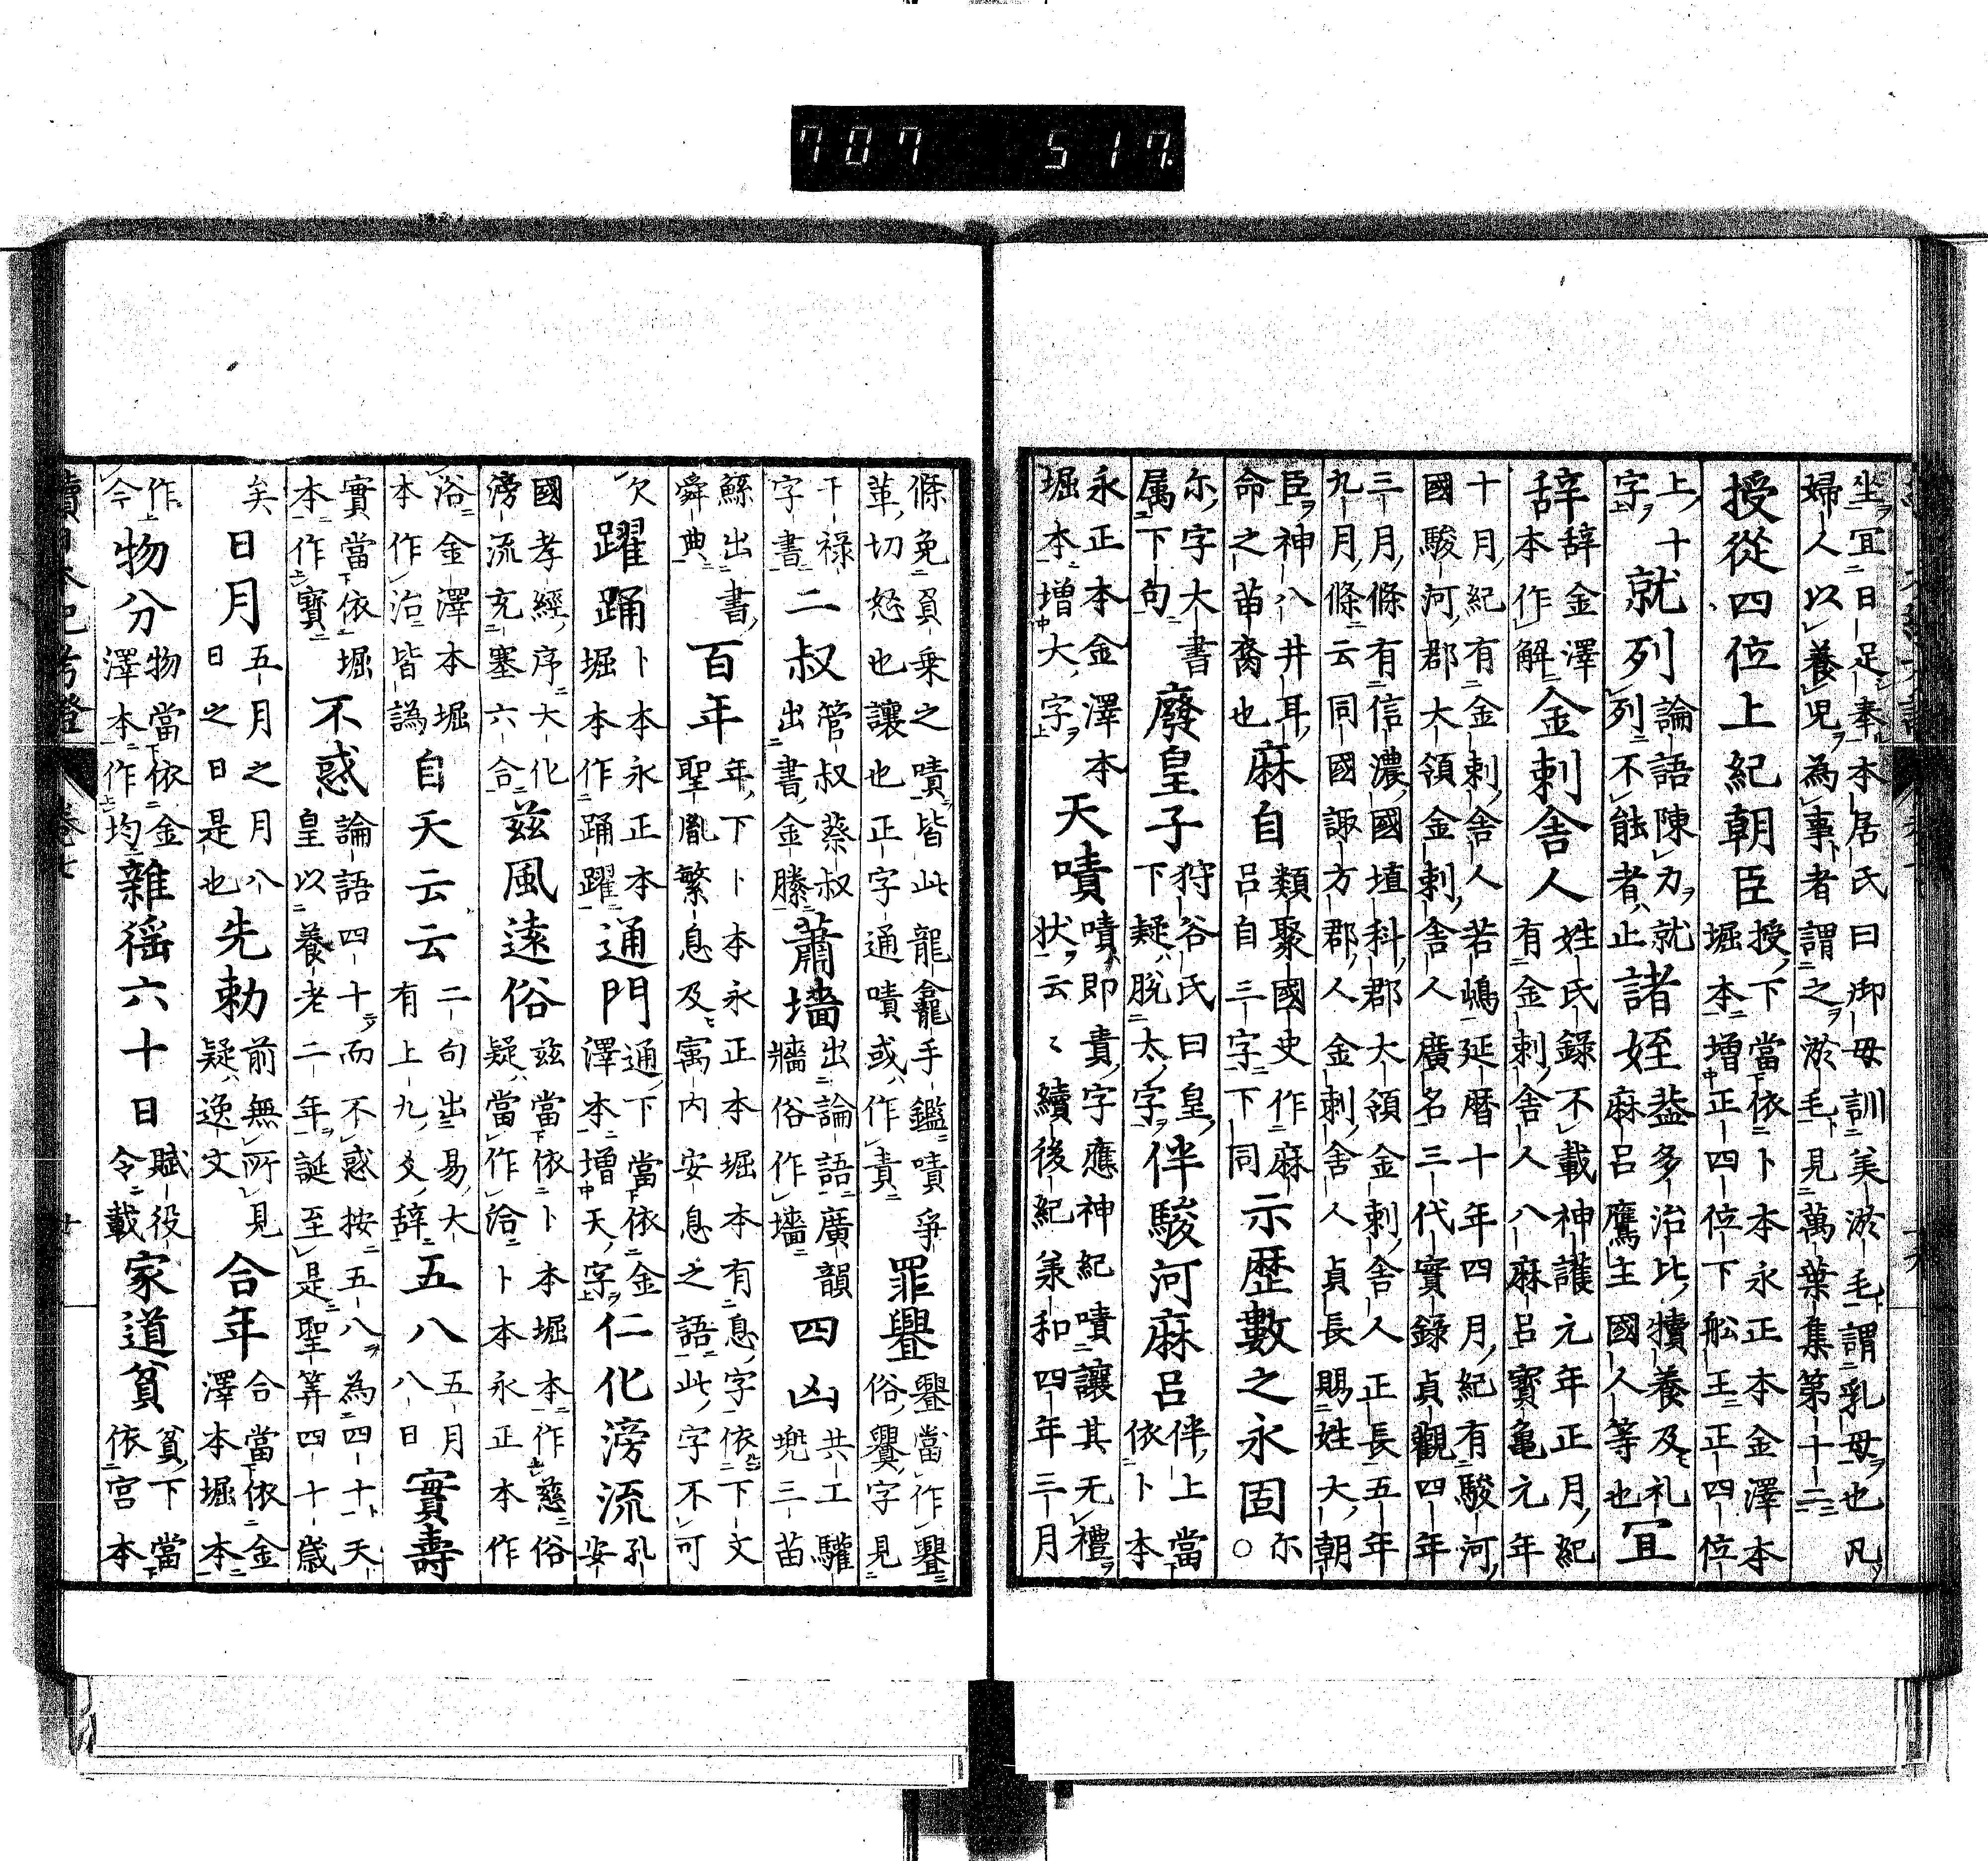 坐宜日足奉本居氏曰御母訓美淤毛謂乳母也凡
婦人以養児為事者謂之淤毛見萬葉集第十二
授從四位上紀朝臣授下當依卜本永正本金澤本堀本増正四位下舩王正四位
上十字就列論語陳力就列不能者止諸姪蓋多治比犢養及礼麻呂鷹主國人等也宜
辞辞金澤本作解金刺舎人姓氏録不載神護元年正月紀有金刺舎人八麻呂寶亀元年
十月紀有金刺舎人若嶋延暦十年四月紀有駿河
國駿河郡大領金刺舎人廣名三代實錄貞觀四年
三月條有信濃國埴科郡大領金刺舎人正長五年
九月條云同國諏方郡人金刺舎人貞長賜姓大朝
臣神八井耳命之苗裔也麻自類聚國史作麻呂自三字下同示歴數之永固○尓
尓字大書属下句廢皇子狩谷氏曰皇下疑脱太字伴駿河麻呂伴上當依卜本
永正本金澤本堀本増大字天嘖嘖即責字應神紀嘖讓其无禮状云〻續後紀兼和四年三月
條免負乗之嘖皆此龍龕手鑑嘖爭革切怒也讓也正字通嘖或作責罪舋舋當作釁俗釁字見
干禄字書二叔管叔蔡叔出書金縢蕭墻出論語廣韻牆俗作墻四凶共工驩兜三苗
鯀出書舜典百年年下卜本永正本堀本有息字依下文聖胤繁息及寓内安息之語此字不可
欠躍踊卜本永正本堀本作踊躍通門通下當依金澤本増天字仁化滂流孔安
國孝經序大化滂流充塞六合兹風遠俗兹當依卜本堀本作慈俗疑當作洽卜本永正本作
浴金澤本堀本作治皆譌自天云云二句出易大有上九爻辞五八五月八日實壽
實當依堀本作寳不惑論語四十而不惑按五八為四十天皇以養老二年誕至是聖筭四十歳
矣日月五月之月八日之日是也先勅前無所見疑逸文合年合當依金澤本堀本
作今物分物當依金澤本作均雜徭六十日賦役令載家道貧貧下當依宮本
續日本紀考證 卷七 廿